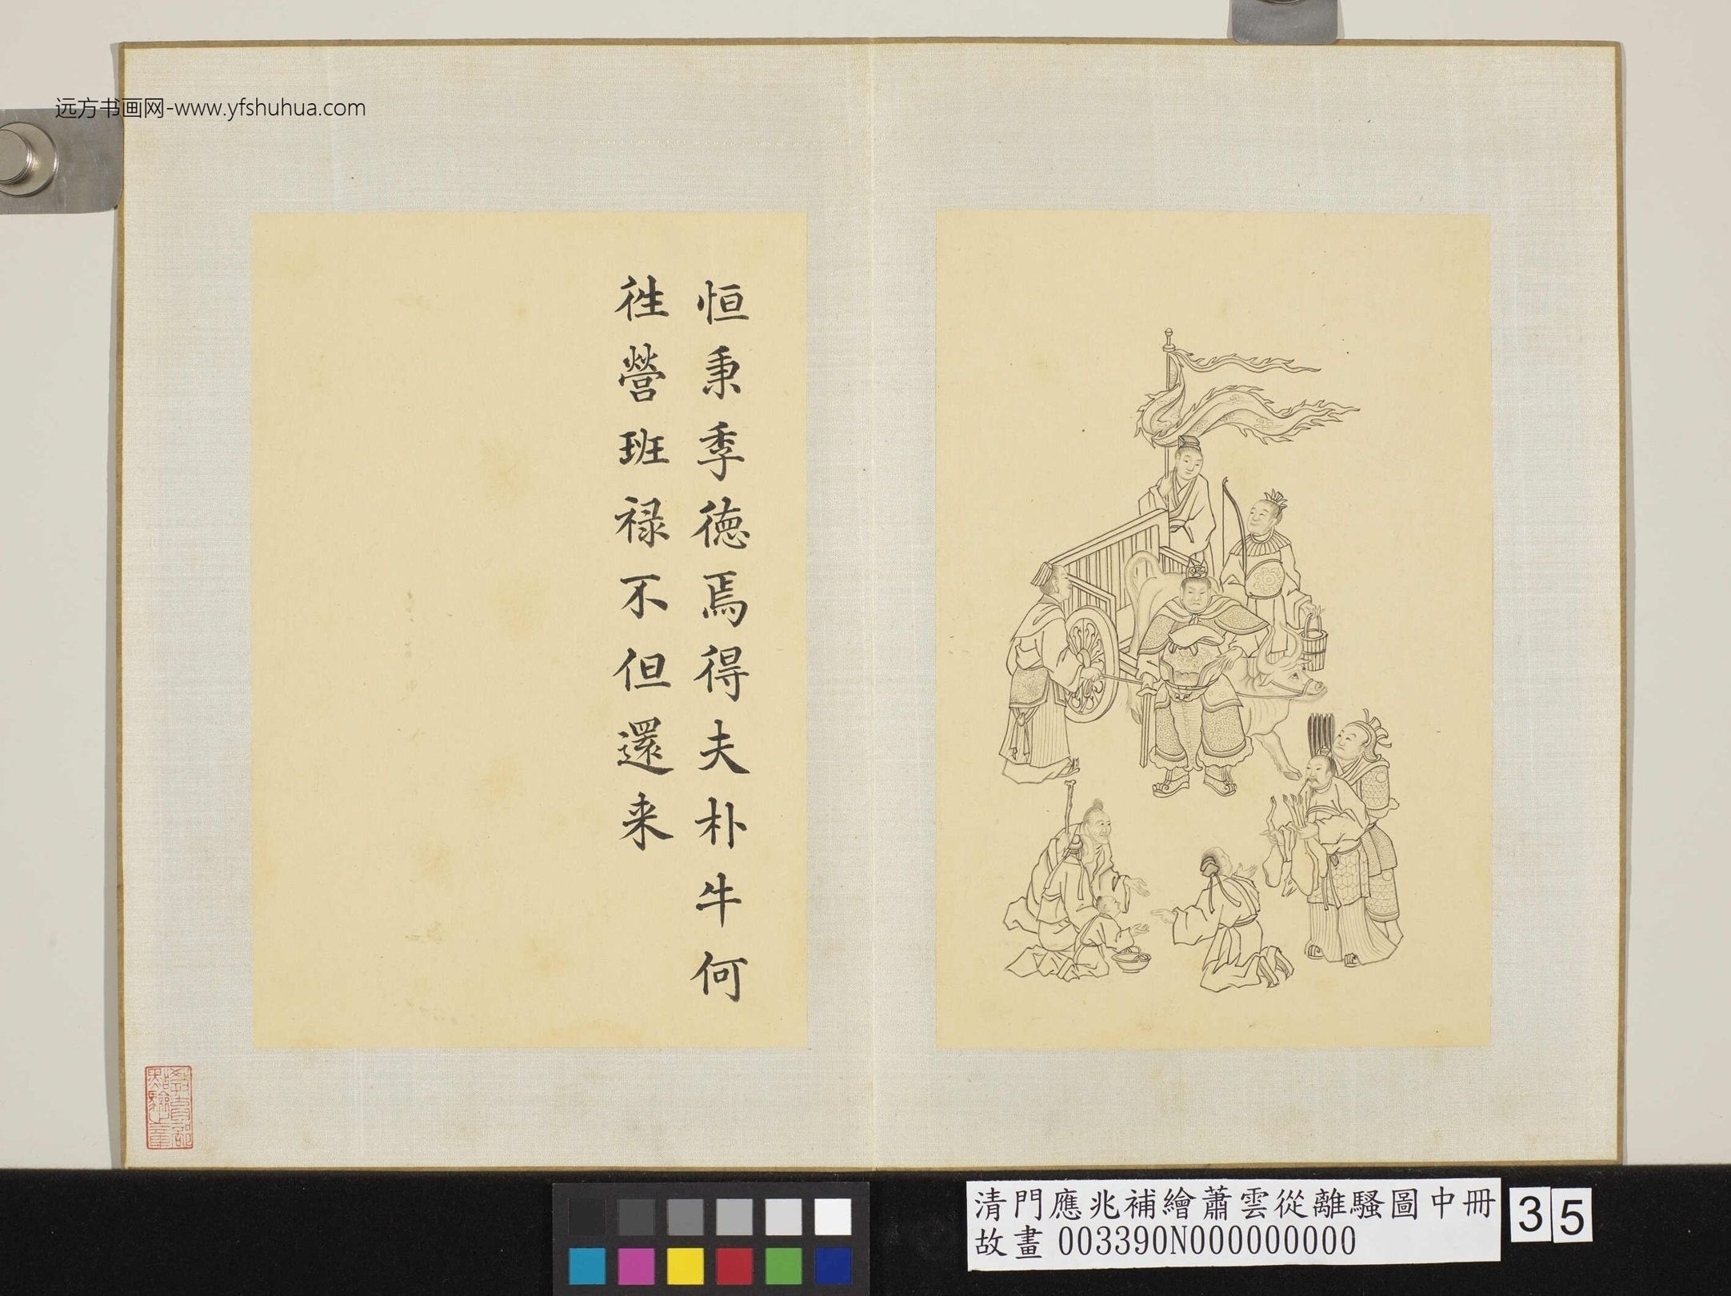 远方书画网-www.yfshuhua.com
恒秉季德焉得夫朴牛何
徃營班禄不但還来
清門應兆補繪蕭雲從離騷圖中冊
故畫 003390N000000000
35